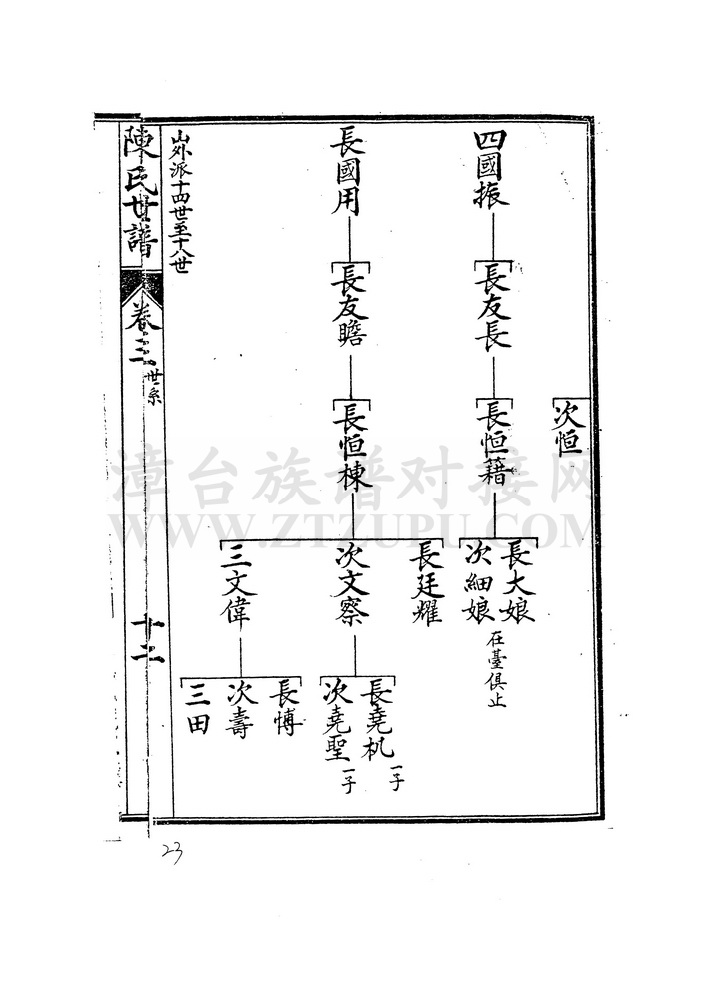 次恒
四國振
長友長
長恒籍
長大娘
次細娘
在臺俱止
長國用
長友瞻
長恒棟
長廷耀
次文察
三文偉
長堯机
一子
次堯聖
一子
長愽
次壽
三田
山外派十四世至十八世
陳氏世譜
卷三
世系
十二
23
漳台族谱对接网
WWW.ZTZUPU.COM